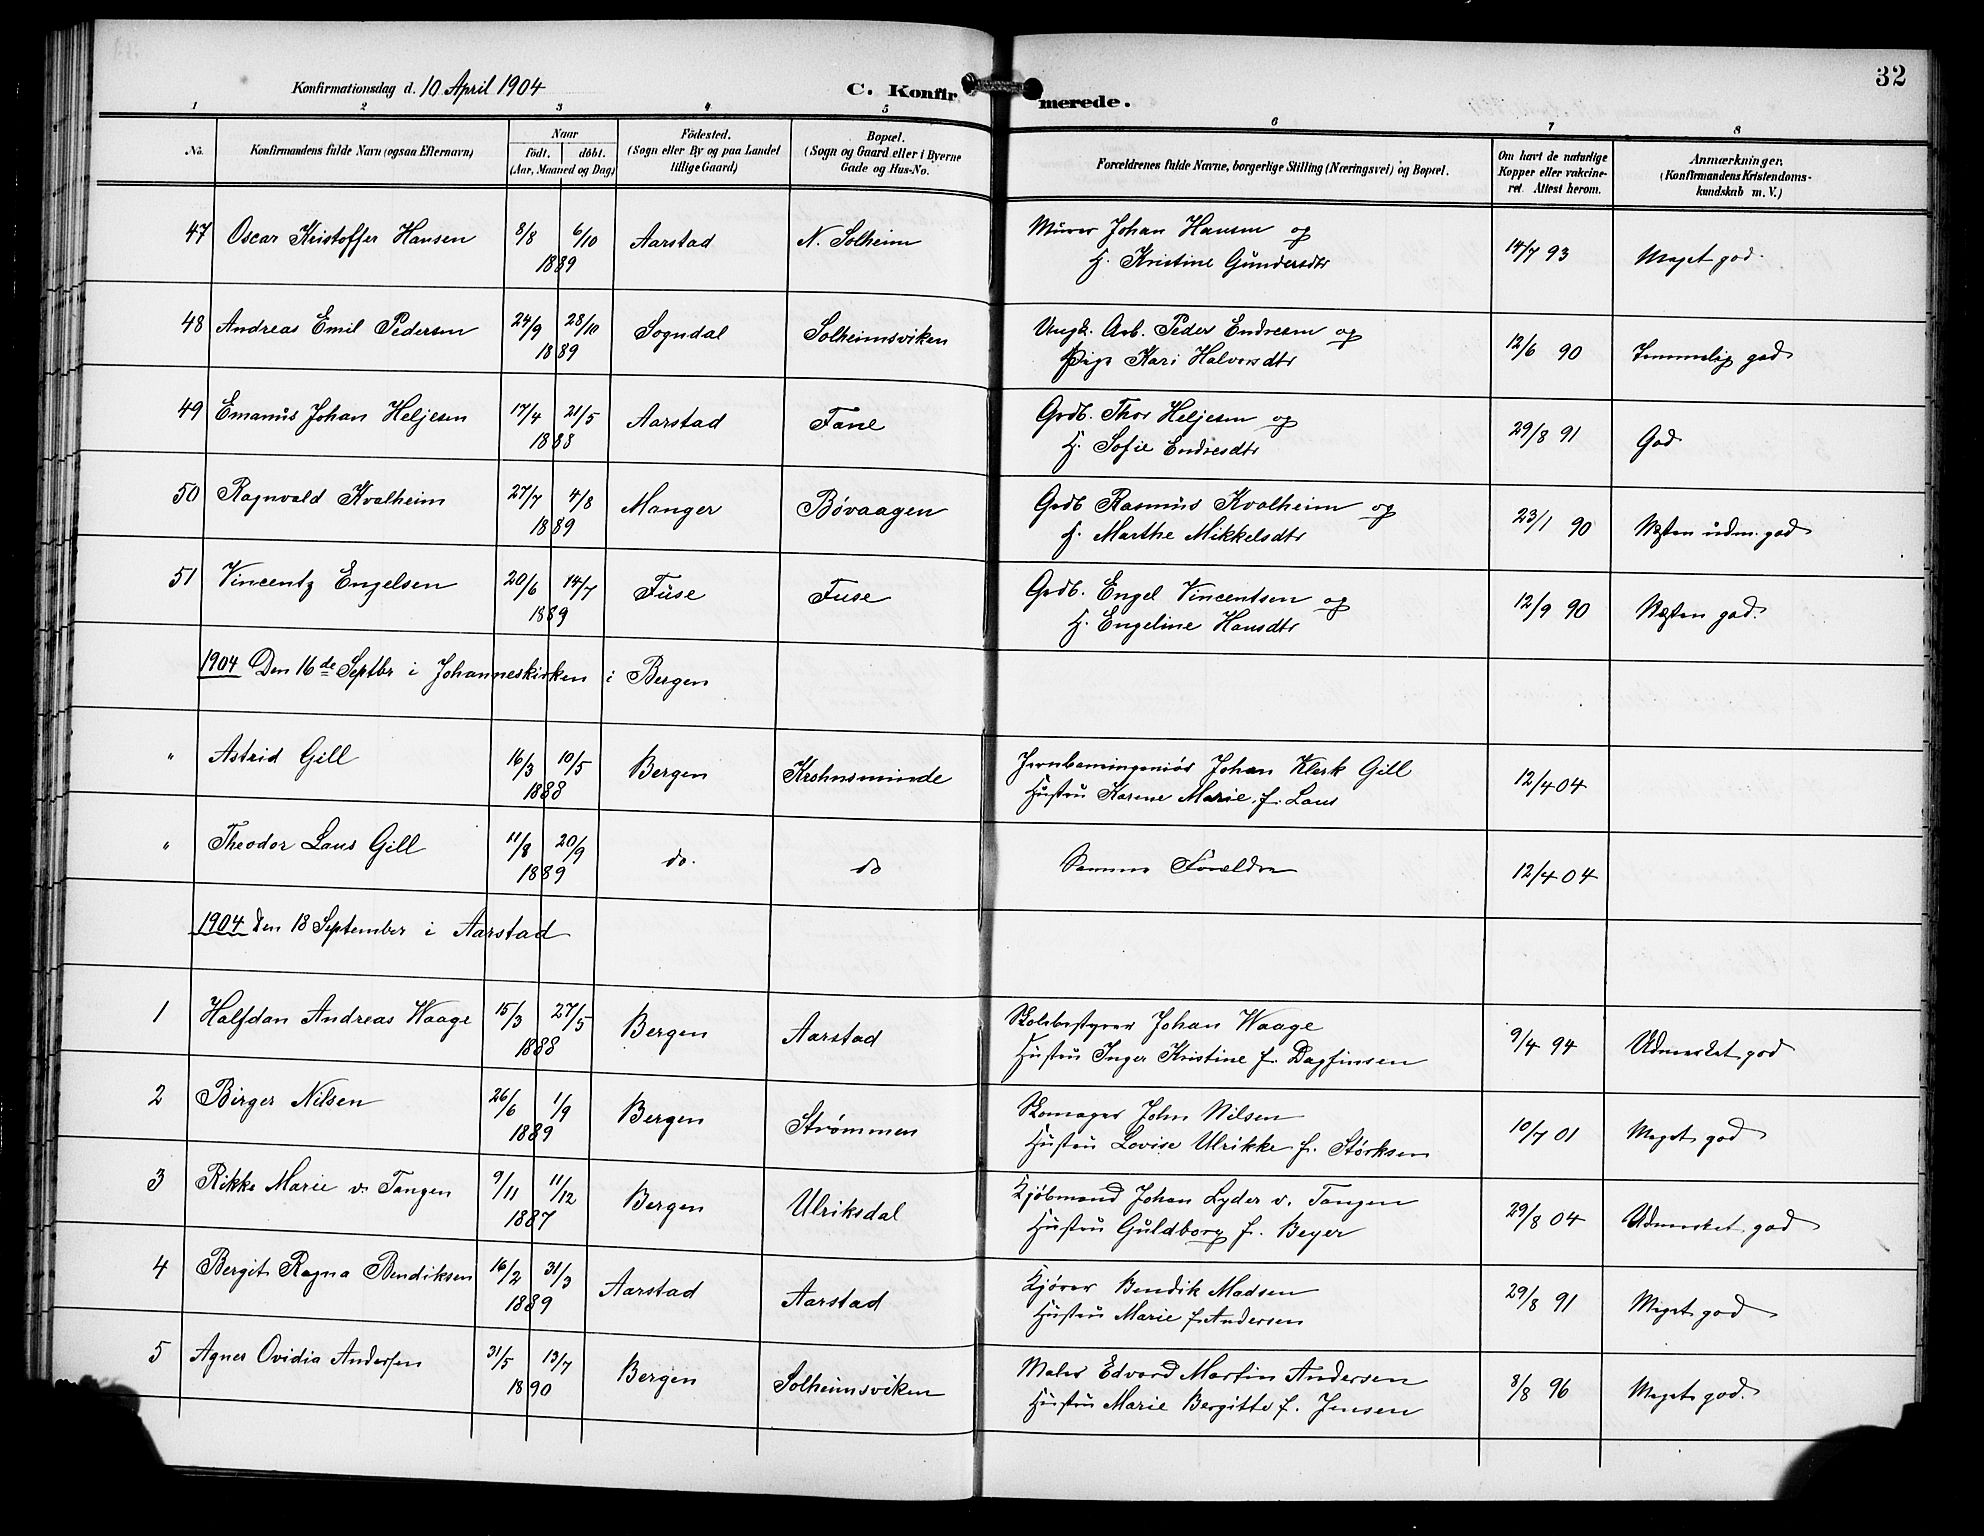 32
Konfirmationsdag d. 10 April 1904
C. Konfirmerede.
1 2 3 4 5 6 7 8
No.
Konfirmandens fulde Navn (ogsaa Efternavn)
Naar
født. døbt.
(Aar, Maaned og Dag)
Fødested.
(Sogn eller By og paa Landet
tillige Gaard)
Bopæl.
(Sogn og Gaard eller i Byerne
Gade og Hus-No.
Forældrenes fulde Navne, borgerlige Stilling (Næringsvei) og Bopæl.
Om havt de naturlige
Kopper eller vakcine-
ret. Attest herom.
Anmærkninger.
(Konfirmandens Kristendoms-
kundskab m. V.)
47 Oscar Kristoffer Hansen 8/8 6/10 Aarstad N. Solheim Murer Johan Hansen og 14/7 93 Meget god.
1889 H. Kristine Gundersdtr
48 Andreas Emil Pedersen 24/9 28/10 Sogndal Solheimsviken Ungk. Arb. Peder Endresen og 12/6 90 Temmelig god
1889 Pige Kari Halvorsdtr
49 Emanus Johan Heljesen 17/4 21/5 Aarstad Fane Grdb. Thor Heljesen og 29/8 91 God
1888 H. Sofie Endresdtr
50 Ragnvald Kvalheim 27/7 4/8 Manger Bøvaagen Grdb Rasmus Kvalheim og 23/1 90 Næsten udm. god
1889 H. Marthe Mikkelsdtr
51 Vincentz Engelsen 20/6 14/7 Fuse Fuse Grdb. Engel Vincentsen og 12/9 90 Næsten god.
1889 H. Engeline Hansdtr
1904 Den 16de Septbr i Johanneskirken i Bergen
" Astrid Gill 16/3 10/5 Bergen Krohnsminde Jernbaneingeniør Johan Klerk Gill 12/4 04
1888 Hustru Karene Marie f. Laus
" Theodor Laus Gill 11/8 20/9 do. do Samme Forældre 12/4 04
1889
1904 Den 18 September i Aarstad
1 Halfdan Andreas Waage 15/3 27/5 Bergen Aarstad Skolebestyrer Johan Waage 9/4 94 Udmerket god
1888 Hustru Inger Kristine f. Dagfinsen
2 Birger Nilsen 26/6 1/9 Bergen Strømmen Skomager John Nilsen 10/7 01 Meget god
1889 Hustru Lovise Ulrikke f. Størksen
3 Rikke Marie v. Tangen 9/11 11/12 Bergen Ulriksdal Kjøbmand Johan Lyder v. Tangen 29/8 04 Udmerket god
1887 Hustru Guldborg f. Beyer
4 Bergit Ragna Bendiksen 16/2 31/3 Aarstad Aarstad Kjører Bendik Madsen 29/8 91 Meget god
1889 Hustru Marie f. Andersen
5 Agner Ovidia Andersen 31/5 13/7 Bergen Solheimsviken Maler Edvard Martin Andersen 8/8 96 Meget god.
1890 Hustru Marie Bergitte f. Jensen